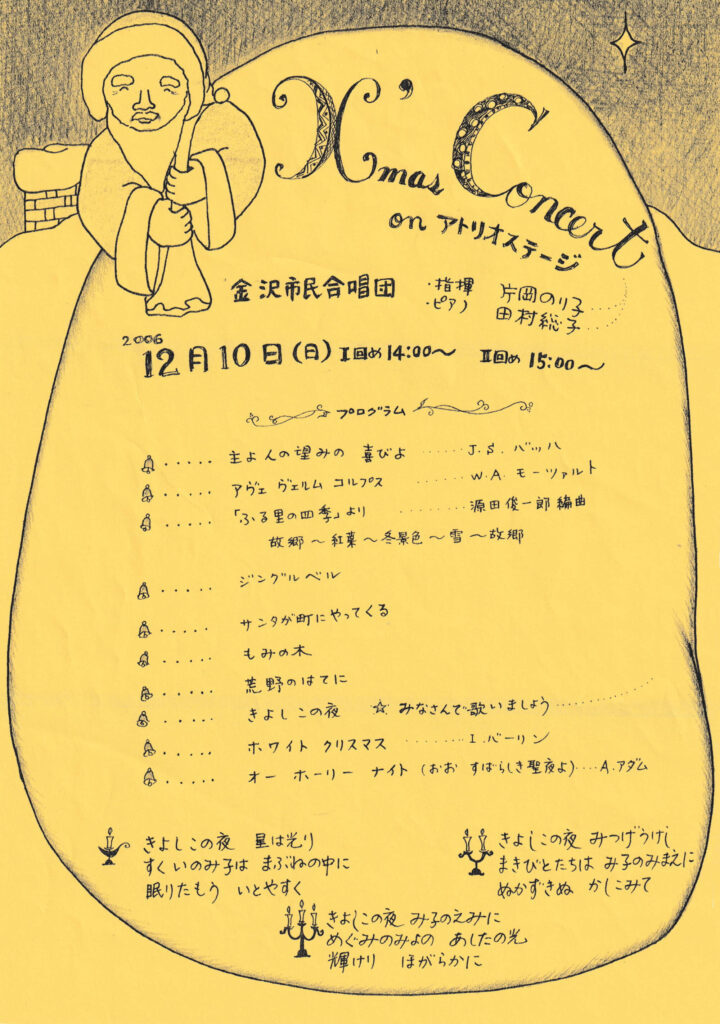 X'mas Concert
on アトリオステージ
金沢市民合唱団 ・指揮 片岡のり子
・ピアノ 田村総子
2006
12月10日(日) Ⅰ回め 14:00〜 Ⅱ回め 15:00〜
プログラム
..... 主よ人の望みの 喜びよ ...... J.S. バッハ
..... アヴェ ヴェルム コルプス ........ W.A. モーツァルト
..... 「ふる里の四季」より ........ 源田俊一郎 編曲
故郷〜紅葉〜冬景色〜雪〜故郷
..... ジングルベル
..... サンタが町にやってくる
..... もみの木
..... 荒野のはてに
..... きよしこの夜 ☆ みなさんで歌いましょう
..... ホワイト クリスマス ........ I.バーリン
..... オー ホーリー ナイト (おお すばらしき聖夜よ)...A.アダム
きよしこの夜 星は光り
すくいのみ子は まぶねの中に
眠りたもう いとやすく
きよしこの夜 みつげうけし
まきびとたちは み子のみまえに
ぬかずきぬ かしこみて
きよしこの夜 み子のえみに
めぐみのみよの あしたの光
輝けり ほがらかに